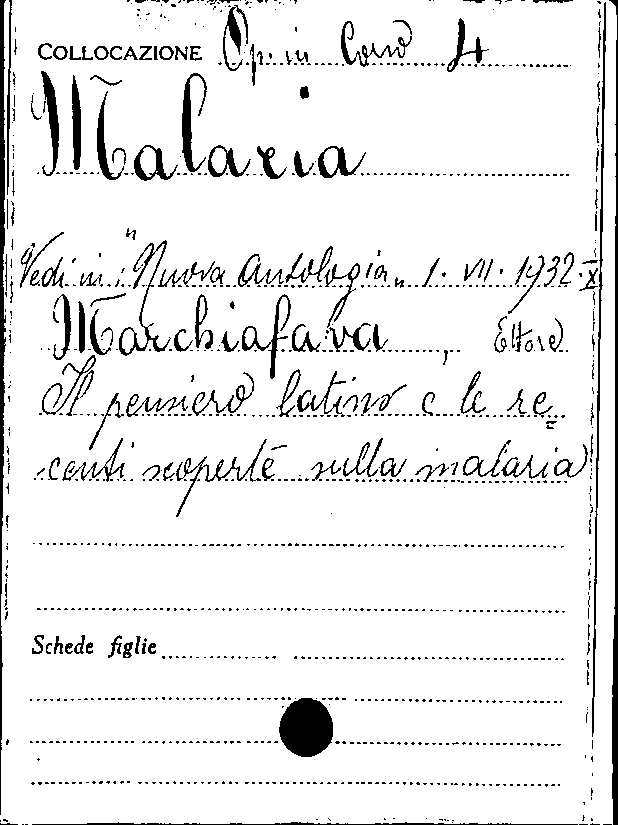 COLLOCAZIONE Op. in Corso 4
Malaria
Vedi in: "Nuova Antologia„ 1. VII. 1932. X
Marchiafava, Ettore
Il pensiero latino e le re=
centi scoperte sulla malaria
Schede figlie